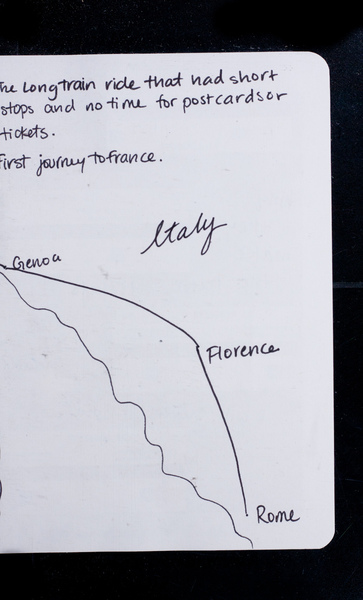 The Longtrain ride that had short
stops and no time for postcards or
tickets.
First journey to france.
Italy
Genoa
Florence
Rome